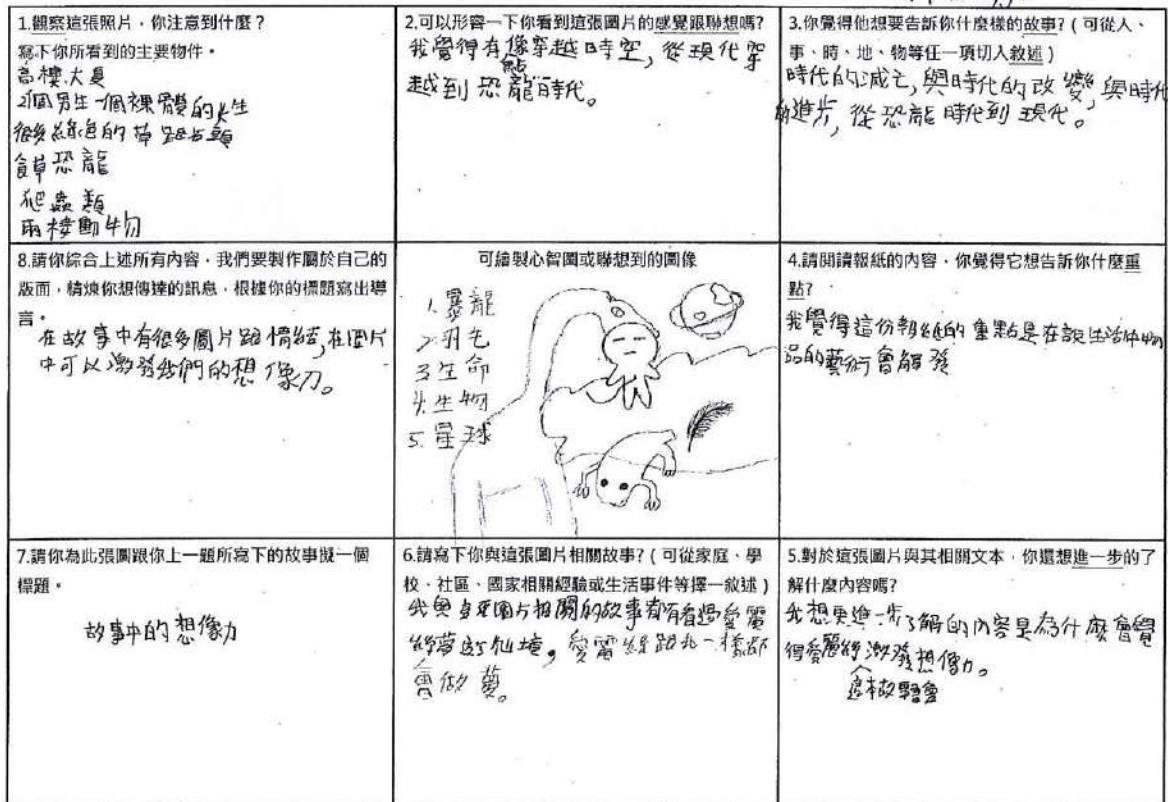 1.觀察這張照片，你注意到什麼？
寫下你所看到的主要物件。
高樓大夏
2個男生一個裸體的女生
很多綠色的草跟石頭
食草恐龍
爬蟲類
兩棲動物
2.可以形容一下你看到這張圖片的感覺跟聯想嗎?
我覺得有點像穿越時空,從現代穿
越到恐龍時代。
3.你覺得他想要告訴你什麼樣的故事?(可從人、
事、時、地、物等任一項切入敘述)
時代的滅亡,與時代的改變,與時代
的進步,從恐龍時代到現代。
8.請你綜合上述所有內容，我們要製作屬於自己的
版面，精煉你想傳達的訊息，根據你的標題寫出導
言。
在故事中有很多圖片跟情結,在圖片
中可以激發我們的想像力。
可繪製心智圖或聯想到的圖像
1.暴龍
2.羽毛
3.生命
4.生物
5.星球
4.請閱讀報紙的內容，你覺得它想告訴你什麼重
點?
我覺得這份報紙的重點是在說生活中物
品的藝術會觸發
7.請你為此張圖跟你上一題所寫下的故事擬一個
標題。
故事中的想像力
6.請寫下你與這張圖片相關故事?(可從家庭、學
校、社區、國家相關經驗或生活事件等擇一敘述)
我與這張圖片相關的故事有看過愛麗
絲夢遊仙境。愛麗絲跟我一樣都
會做夢。
5.對於這張圖片與其相關文本，你還想進一步的了
解什麼內容嗎?
我想更進一步了解的內容是為什麼會覺
得愛麗絲這本故事會激發想像力。